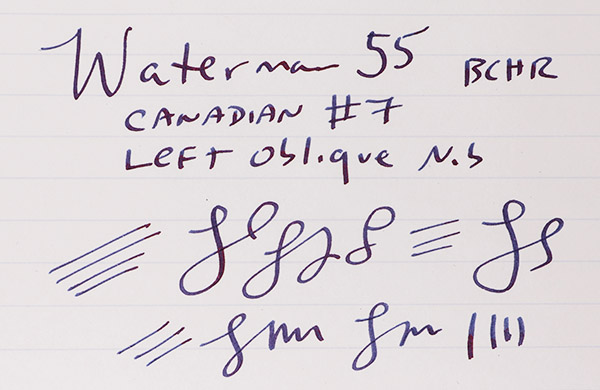 Waterman 55 BCHR
CANADIAN #7
LEFT Oblique Nib